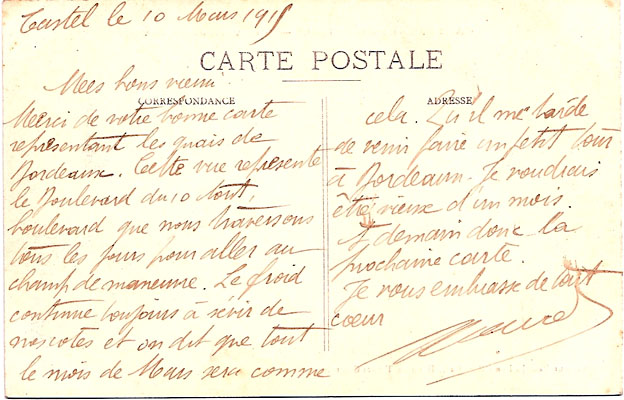 Castel le 10 Mars 1915
CARTE POSTALE
Mes bons vieux
CORRESPONDANCE
Merci de votre bonne carte
représentant les quais de
Bordeaux. Cette vue représente
le Boulevard du 10 Aout,
boulevard que nous traversons
tous les jours pour aller au
champ de manœuvre. Le froid
continue toujours à sévir de
nos cotes et on dit que tout
le mois de Mars sera comme
ADRESSE
cela. Qu'il me tarde
de venir faire un petit tour
à Bordeaux. Je voudrais
être vieux d'un mois.
A demain donc la
prochaine carte.
Je vous embrasse de tout
cœur